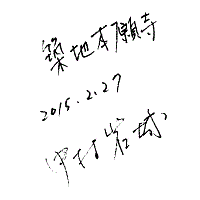 築地本願寺
2015.2.27
中村岩城